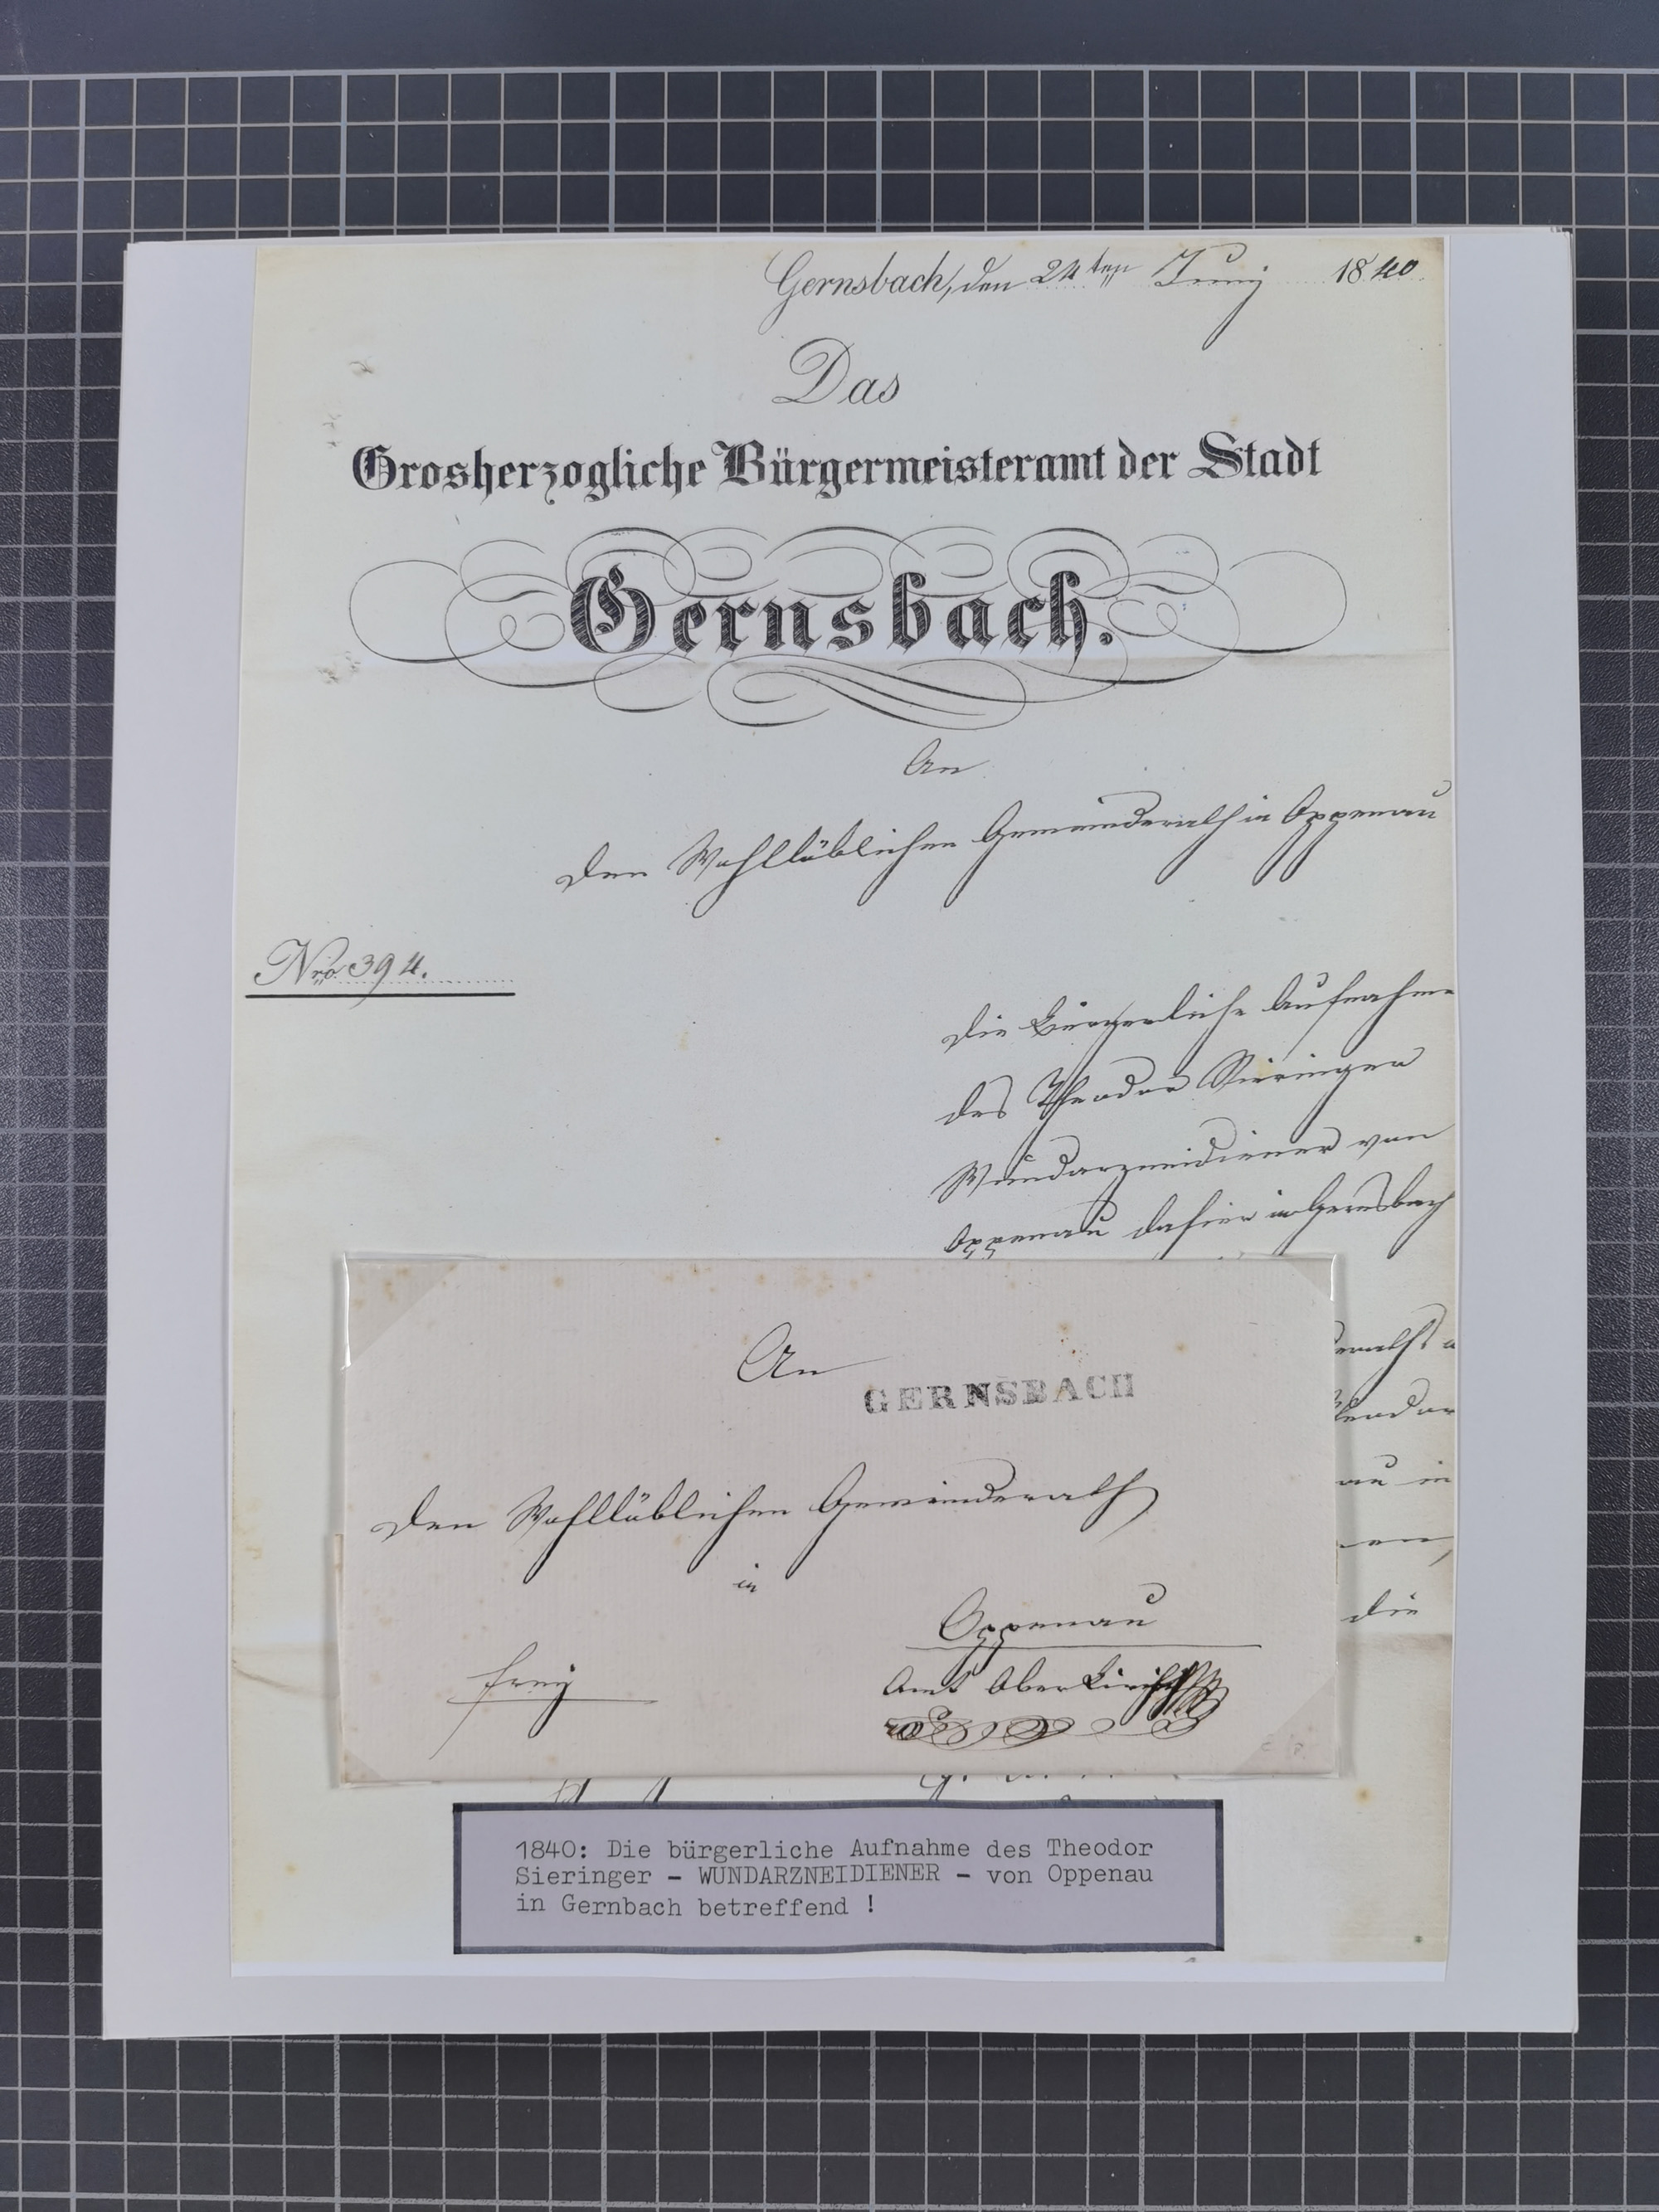 Gernsbach, den 24ten Juny 1840
Das
Grosherzogliche Bürgermeisteramt der Stadt
Gernsbach.
An
den Wohllöblichen Gemeinderath in Oppenau
Nro. 394.
Die bürgerliche Aufnahme
des Theodor Sieringer
Wundarzneidiener von
Oppenau dahier in Gernsbach
An
GERNSBACH
den Wohllöblichen Gemeinderath
in
Oppenau
frey
Amt Oberkirch
au in
die
1840: Die bürgerliche Aufnahme des Theodor
Sieringer - WUNDARZNEIDIENER - von Oppenau
in Gernbach betreffend !